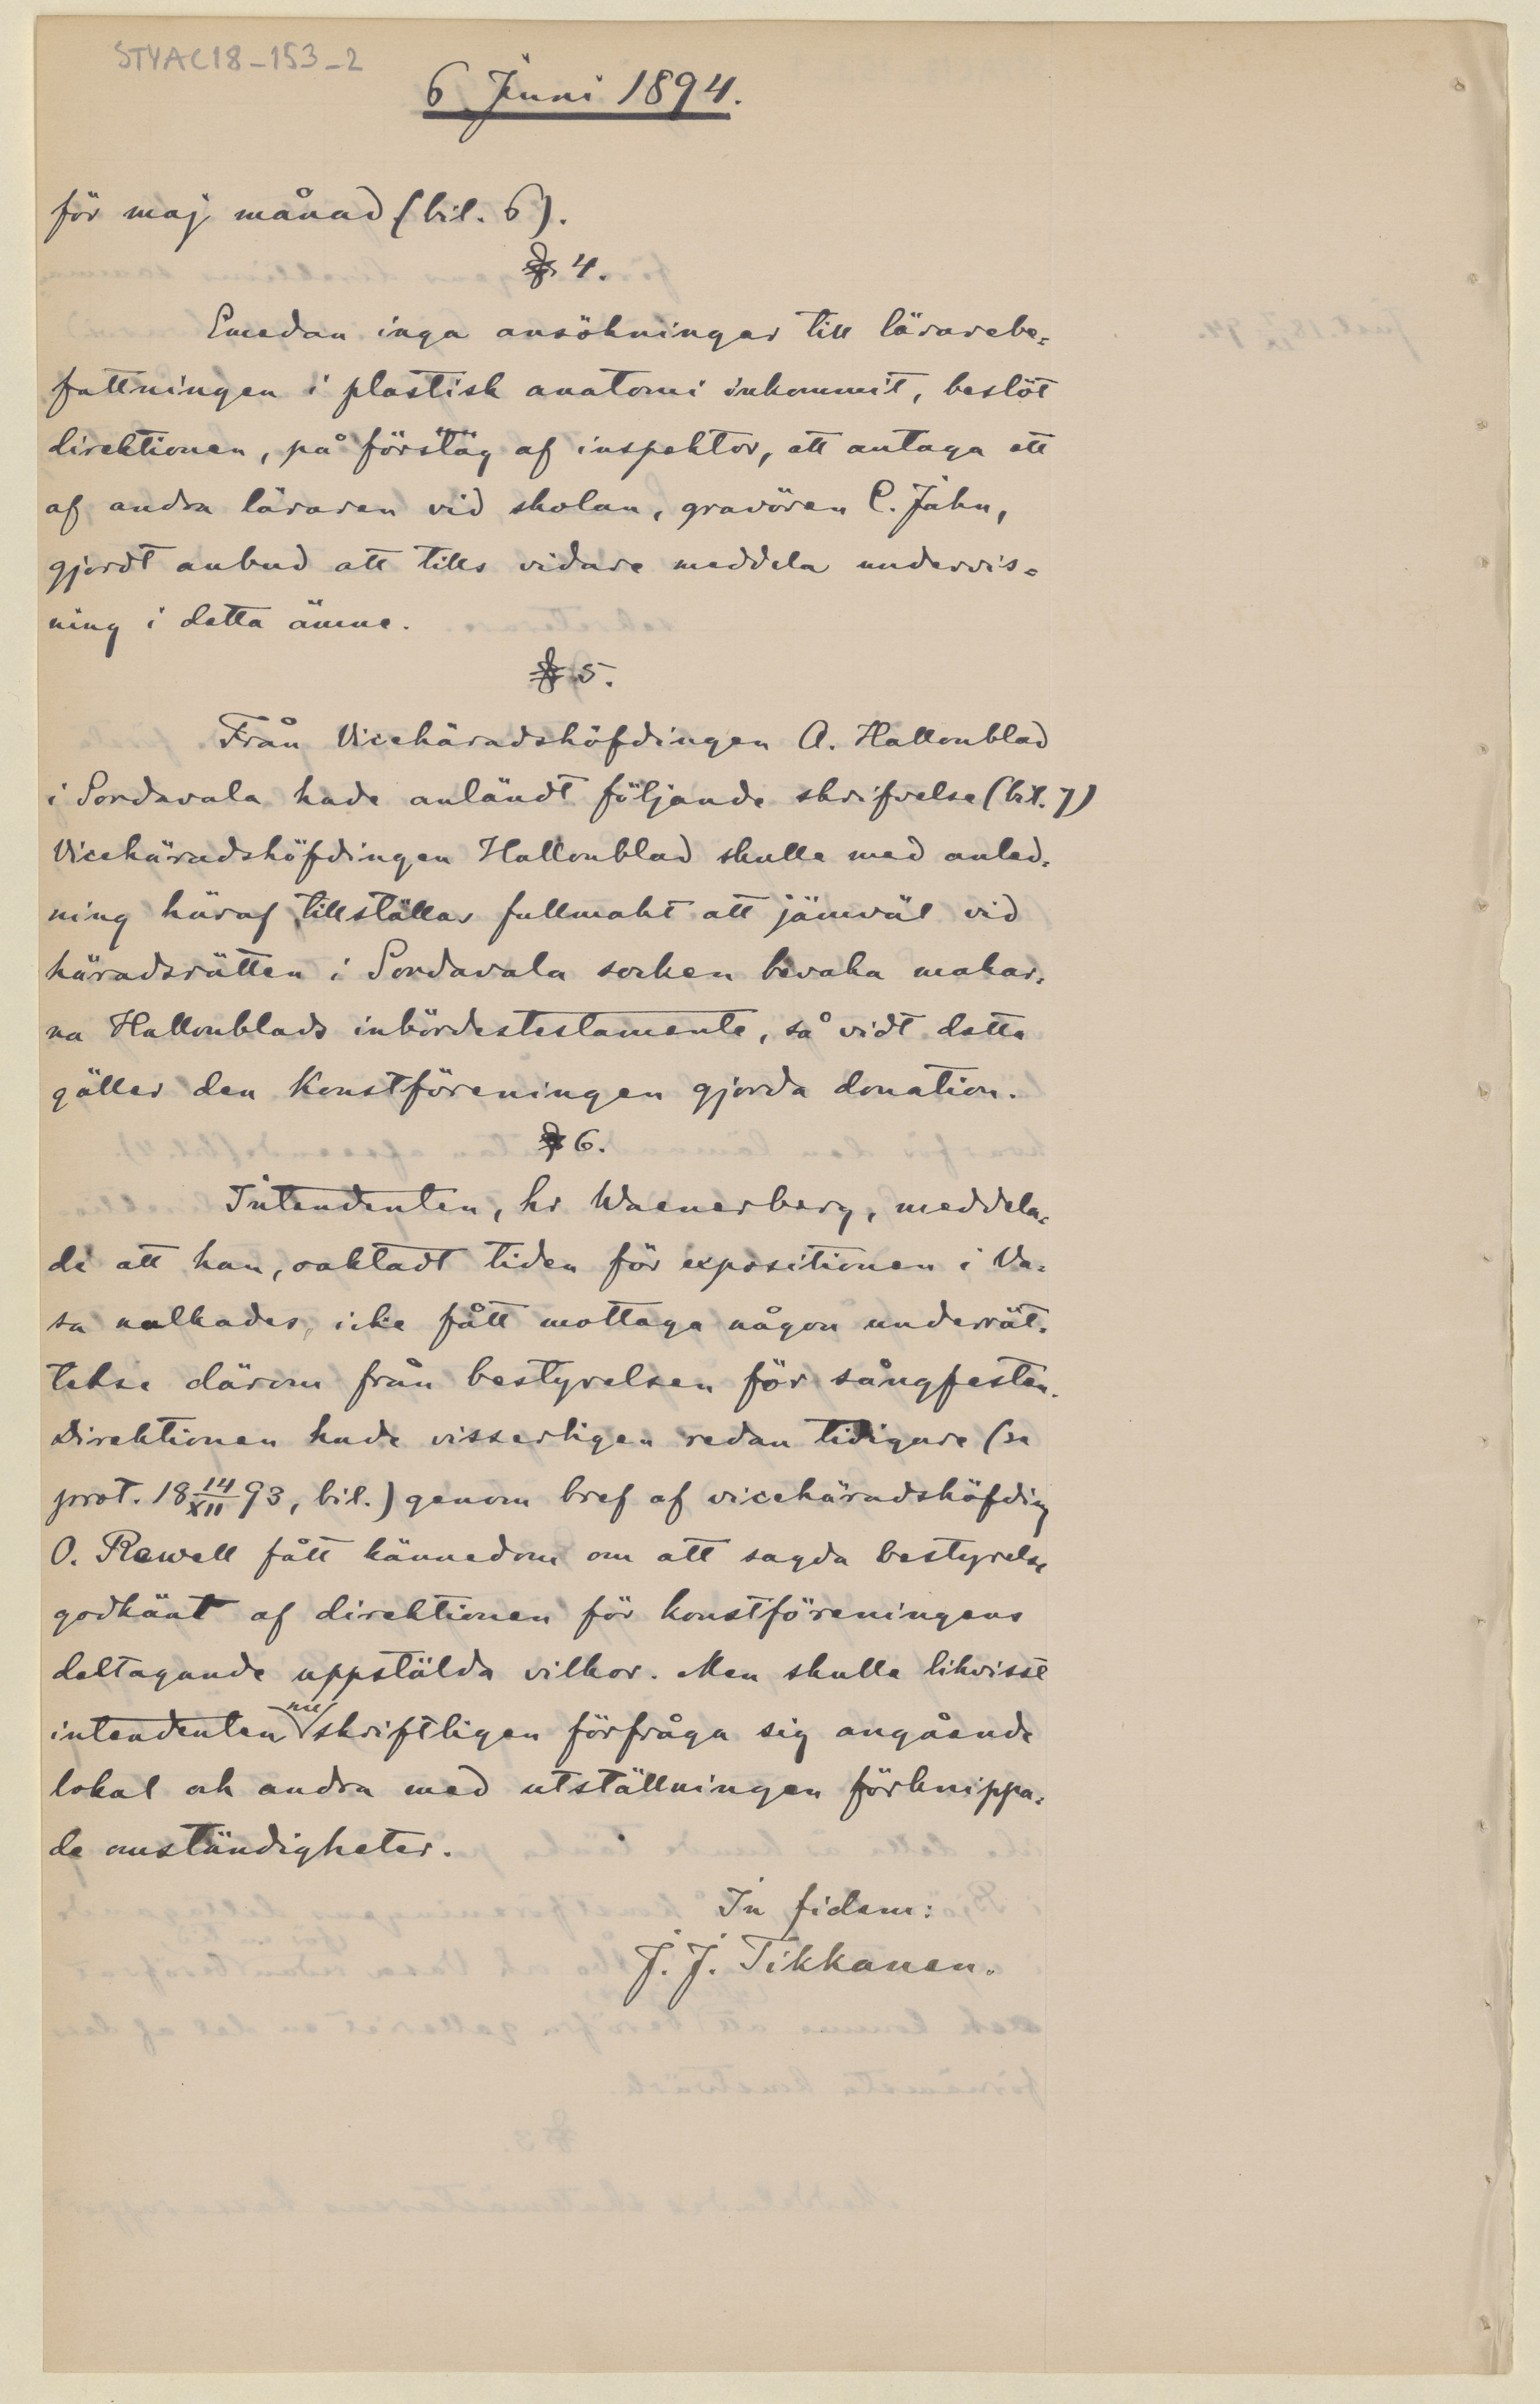 STYAC18-153-2
6 Juni 1894.
för maj månad (bil. 6).
§ 4.
Emedan inga ansökningar till lärarebe-
fattningen i plastisk anatomi inkommit, beslöt
direktionen, på förslag af inspektor, att antaga ett
af andra läraren vid skolan, gravören C. Jahn,
gjordt anbud att tills vidare meddela undervis-
ning i detta ämne.
§ 5.
Från Vicehäradshöfdingen A. Hallonblad
i Sordavala hade anländt följande skrifvelse (bil. 7)
Vicehäradshöfdingen Hallonblad skulle med anled-
ning häraf tillställas fullmakt att jämväl vid
häradsrätten i Sordavala socken bevaka makar-
na Hallonblads inbördestestamente, så vidt detta
gäller den Konstföreningen gjorda donation.
§ 6.
Intendenten, hr Waenerberg, meddela-
de att han, oaktadt tiden för expositionen i Va-
sa nalkades, icke fått mottaga någon underrät-
telse därom från bestyrelsen för sångfesten.
Direktionen hade visserligen redan tidigare (se
prot. 18 14/XII 93, bil.) genom bref af vicehäradshöfding
O. Rewell fått kännedom om att sagda bestyrelse
godkänt af direktionen för konstföreningens
deltagande uppstälda vilkor. Men skulle likvisst
intendenten nu skriftligen förfråga sig angående
lokal och andra med utställningen förknippa-
de omständigheter.
In fidem:
J. J. Tikkanen.